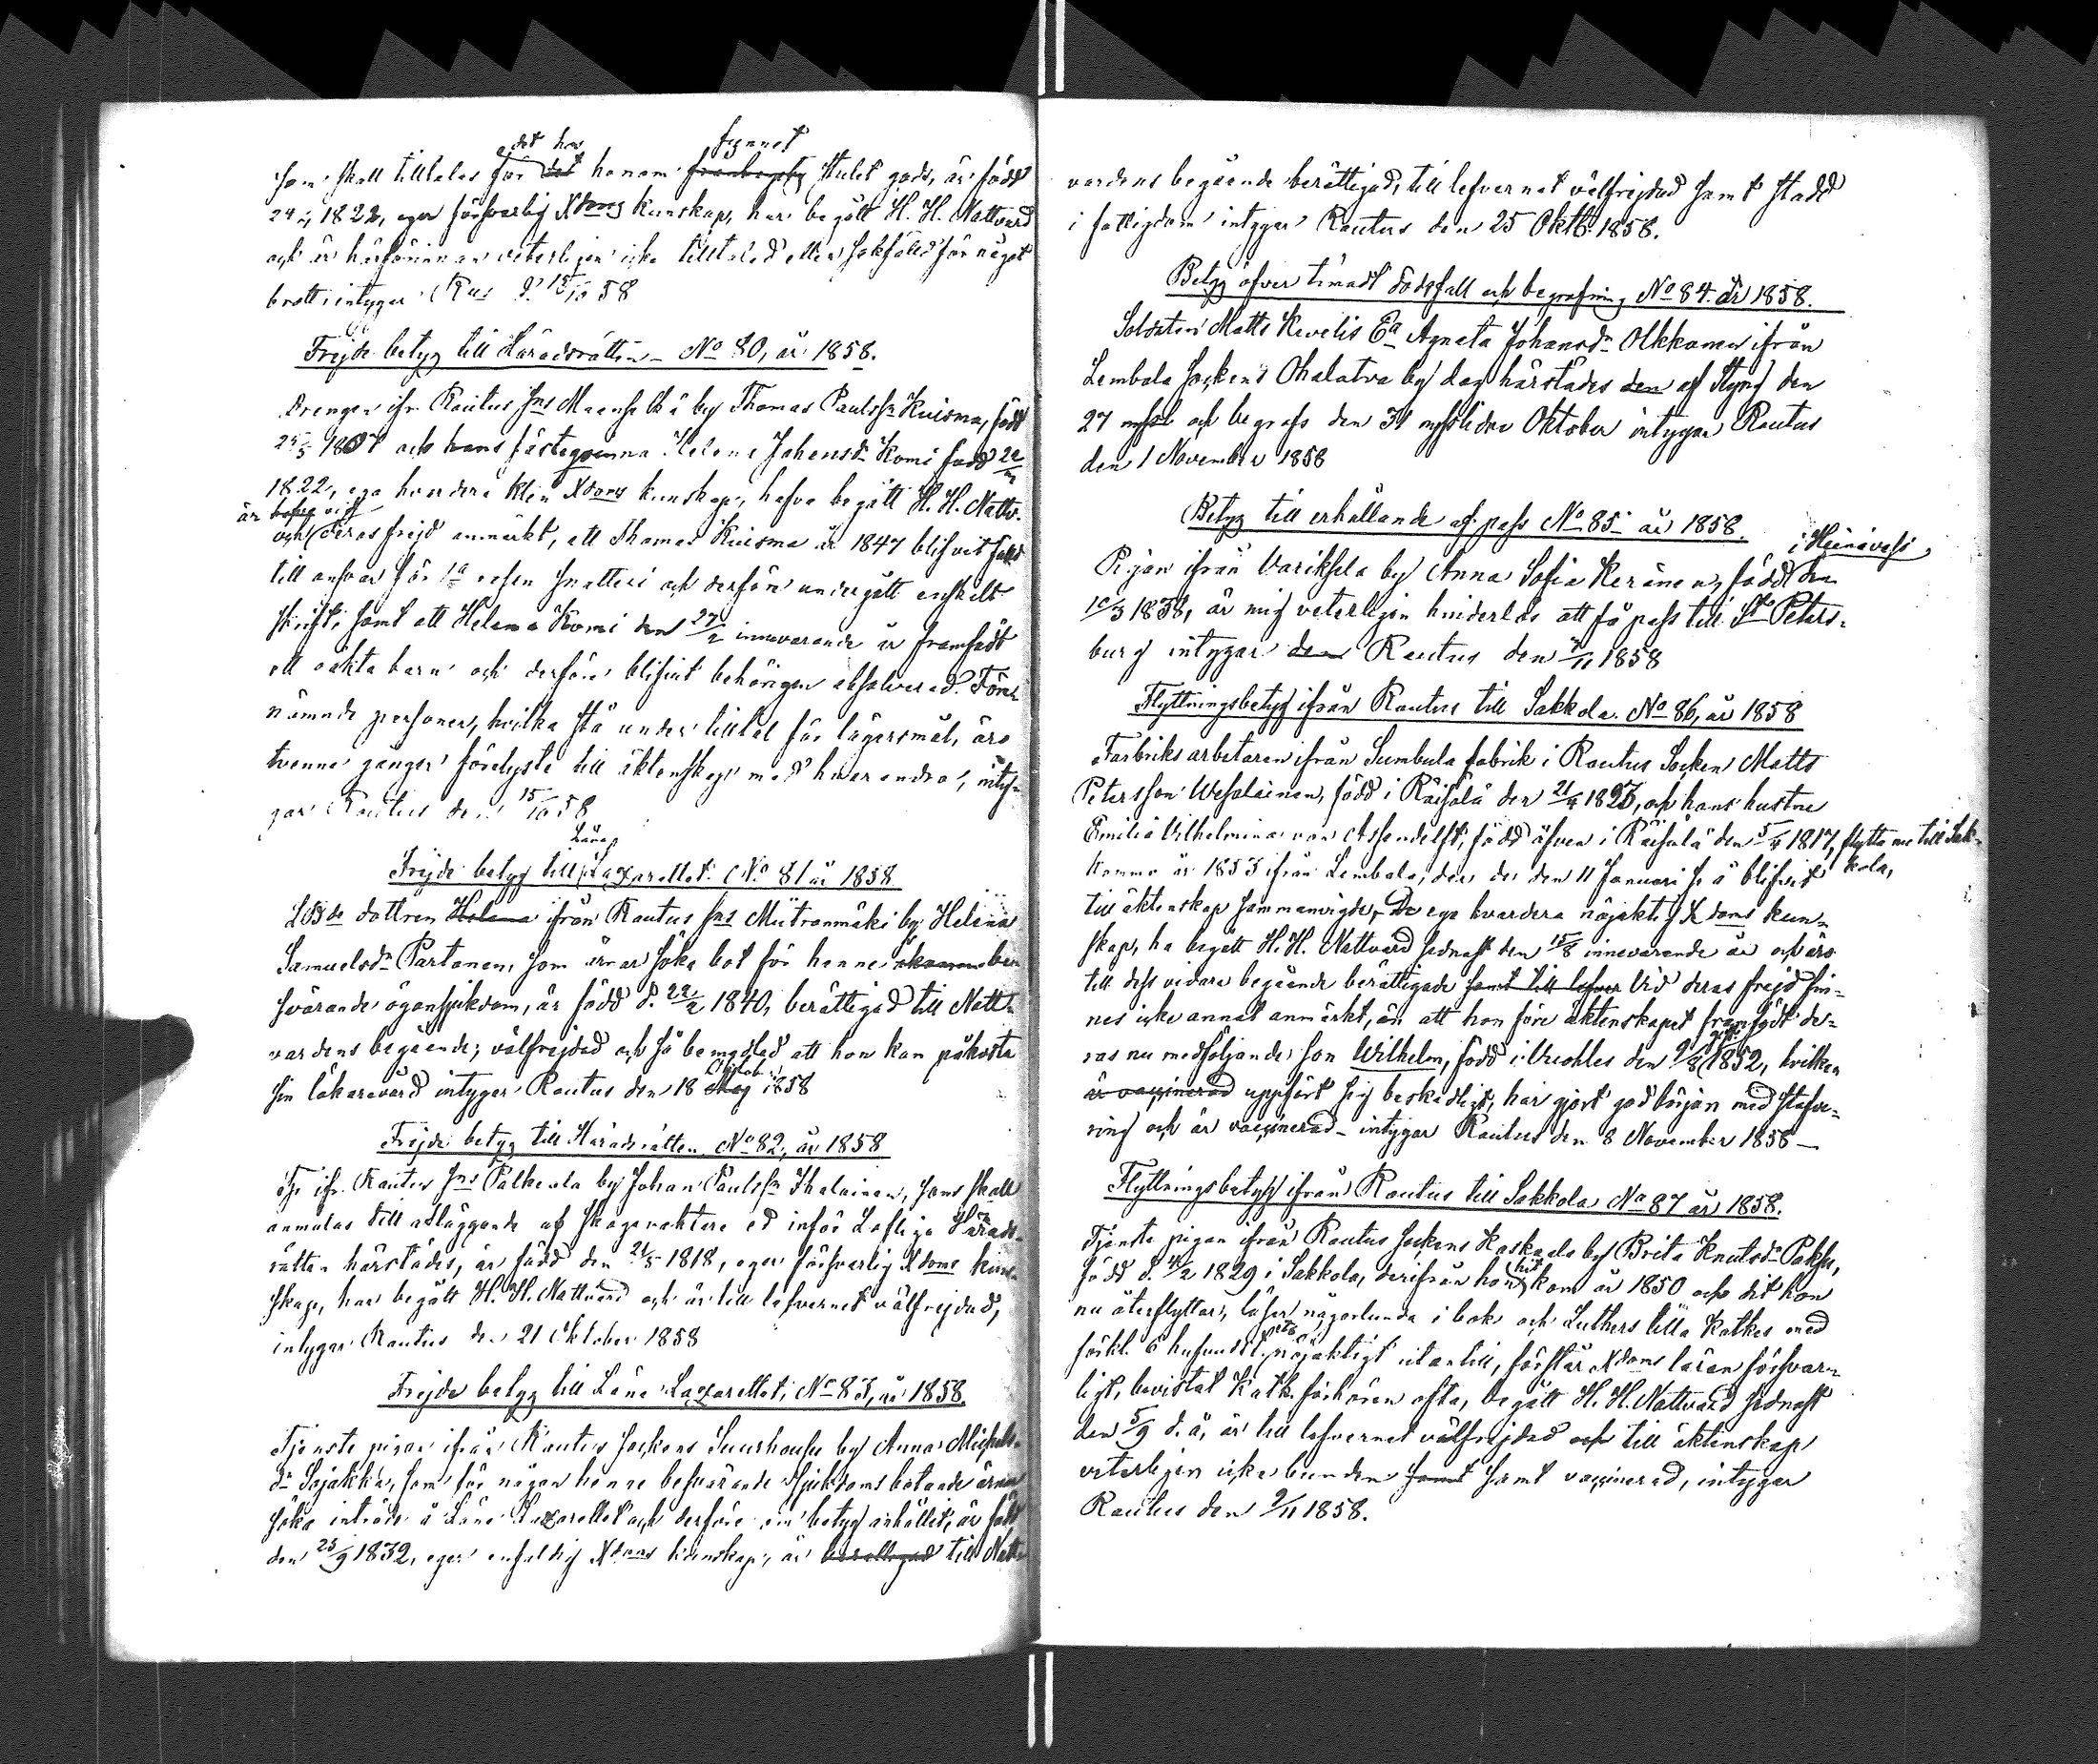 det hos funnet
som skall tilltalas för det honom stulet gods, är född
1822, eger försvarlig Xdoms kunskap, har begått H. H. Nattvard
och är härförinnan veterligen icke tilltalad eller sakfälld för något
brott, intygar Rus d. 15/10 58
Frejde betyg till Häradsrätten No 80, år 1858.
Drengen ifr. Rautus Sns Maanselkä by Thomas Paulssn Kuisma, född
och hans fästeqvinna Helena Johansdr Komi född 22
1822, ega hvardera klen Xdoms kunskap, hafva begått H. H. Nattv.
är vid
och deras frejd anmärkt, att Thomas Kuisma år 1847 blifvit fälld
till ansvar för 1a resan snatteri och derföre undergått enskilt
skrift, samt att Helena Komi den 27/2 innevarande år framfödt
ett oäkta barn och derföre blifvit behörigen absolverad. Före-
nämnde personer, hvilka stå under tilltal för lägersmål, äro
tvenne gånger förelyste till äktenskap med hvarandra, inty-
gar Rautus den 15/10 58
Läns
Frejde betyg till Lazarettet No 81 år 1858
Losde dottren Helena ifrån Rautus Sns Miitronmäki by Helena
Samuelsdr Partanen, som ärnar söka bot för henne be-
svärande ögonsjukdom, är född d. 22/2 1840, berättigad till Natt-
vardens begående, välfrejdad och så bemedlad att hon kan påkosta
Oktober
sin läkarevård intygar Rautus den 18 1858
Frejde betyg till Häradsrätten No 82, år 1858
ifr. Rautus Sns Palkeala by Johan Paulssn Ihalainen, som skall
anmälas till afläggande af skogvaktare ed inför Loflige Härads-
rätten härstädes, är född den 21/5 1818, eger försvarlig Xdoms kun-
skap, har begått H. H. Nattvard och är till lefvernet välfrejdad,
intygar Rautus den 21 Oktober 1858
Frejde betyg till Läns Lazarettet, No 83, år 1858.
Tjenste pigan ifrån Rautus Sockens Suurhousu by Anna Michels-
dr Sojakka, som för någon henne besvärande sjukdoms botande ärnar
söka inträde å Läns Lazarettet och derföre om betyg anhållit, är född
den 25/9 1832, eger enfaldig Xdoms kunskap, är berättigad till Natt-
vardens begående berättigad, till lefvernet välfrejdad samt stadd
i fattigdom intygar Rautus den 25 Oktb. 1858.
Betyg öfver timadt dödsfall och begrafning No 84. år 1858.
Soldaten Matts Kevelis Ea Agneta Johansdr Olkkonen ifrån
Lembala Sockens Ohalatva by dog härstädes den af styng den
27 och begrafs den 31 nystlidne Oktober intygar Rautus
den 1 November 1858
Betyg till erhållande af pass No 85 år 1858.
i Heinävesi
Pigan ifrån Varikselа by Anna Sofia Keränen, född den
10/3 1838, är mig veterligen hinderlös att få pass till St Peters-
burg intygar den Rautus den 1858
Flyttningsbetyg ifrån Rautus till Sakkola. No 86, år 1858
Fabriks arbetaren ifrån Sumbula fabrik i Rautus Socken Matts
Petersson Wesalainen, född i Räisälä den 21/4 1823, och hans hustru
Emilia Vilhelmina von Assendelft, född äfven i Räisälä den 1817, flytta nu till Sak-
komma år 1853 ifrån Lembala, der de den 11 Januari s. å. blifvit kola,
till äktenskap sammanvigde. De ega hvardera nöjaktig Xdoms kun-
skap, ha begått H. H. Nattvard sednast den 15/8 innevarande år och äro
till dess vidare begående berättigade samt till lefver Vid deras frejd fin-
nes icke annat anmärkt, än att hon före äktenskapet framfödt de-
ras nu medföljande son Wilhelm, född i Vuohles den 9/8 1852, hvilken
är vaccinerad uppfört sig beskedligt, har gjort god början med stafve-
ring och är vaccinerad intygar Rautus den 8 November 1858
Flyttningsbetyg ifrån Rautus till Sakkola No 87 år 1858.
Tjenste pigan ifrån Rautus Sockens Koskela by Brita Knutsdr Pakse,
hit
född d. 1829 i Sakkola, derifrån hon kom år 1850 och dit hon
nu återflyttar, läser någorlunda i bok och Luthers lilla Katkes med
förkl. 6 hufvudst. nöjaktigt utantill, förstår Xdoms läran försvar-
ligt, bevistat Katk. förhören ofta, begått H. H. Nattvard sednast
den 5/9 d. å., är till lefvernet välfrejdad och till äktenskap
veterligen icke bunden samt samt vaccinerad, intygar
Rautus den 9/11 1858.